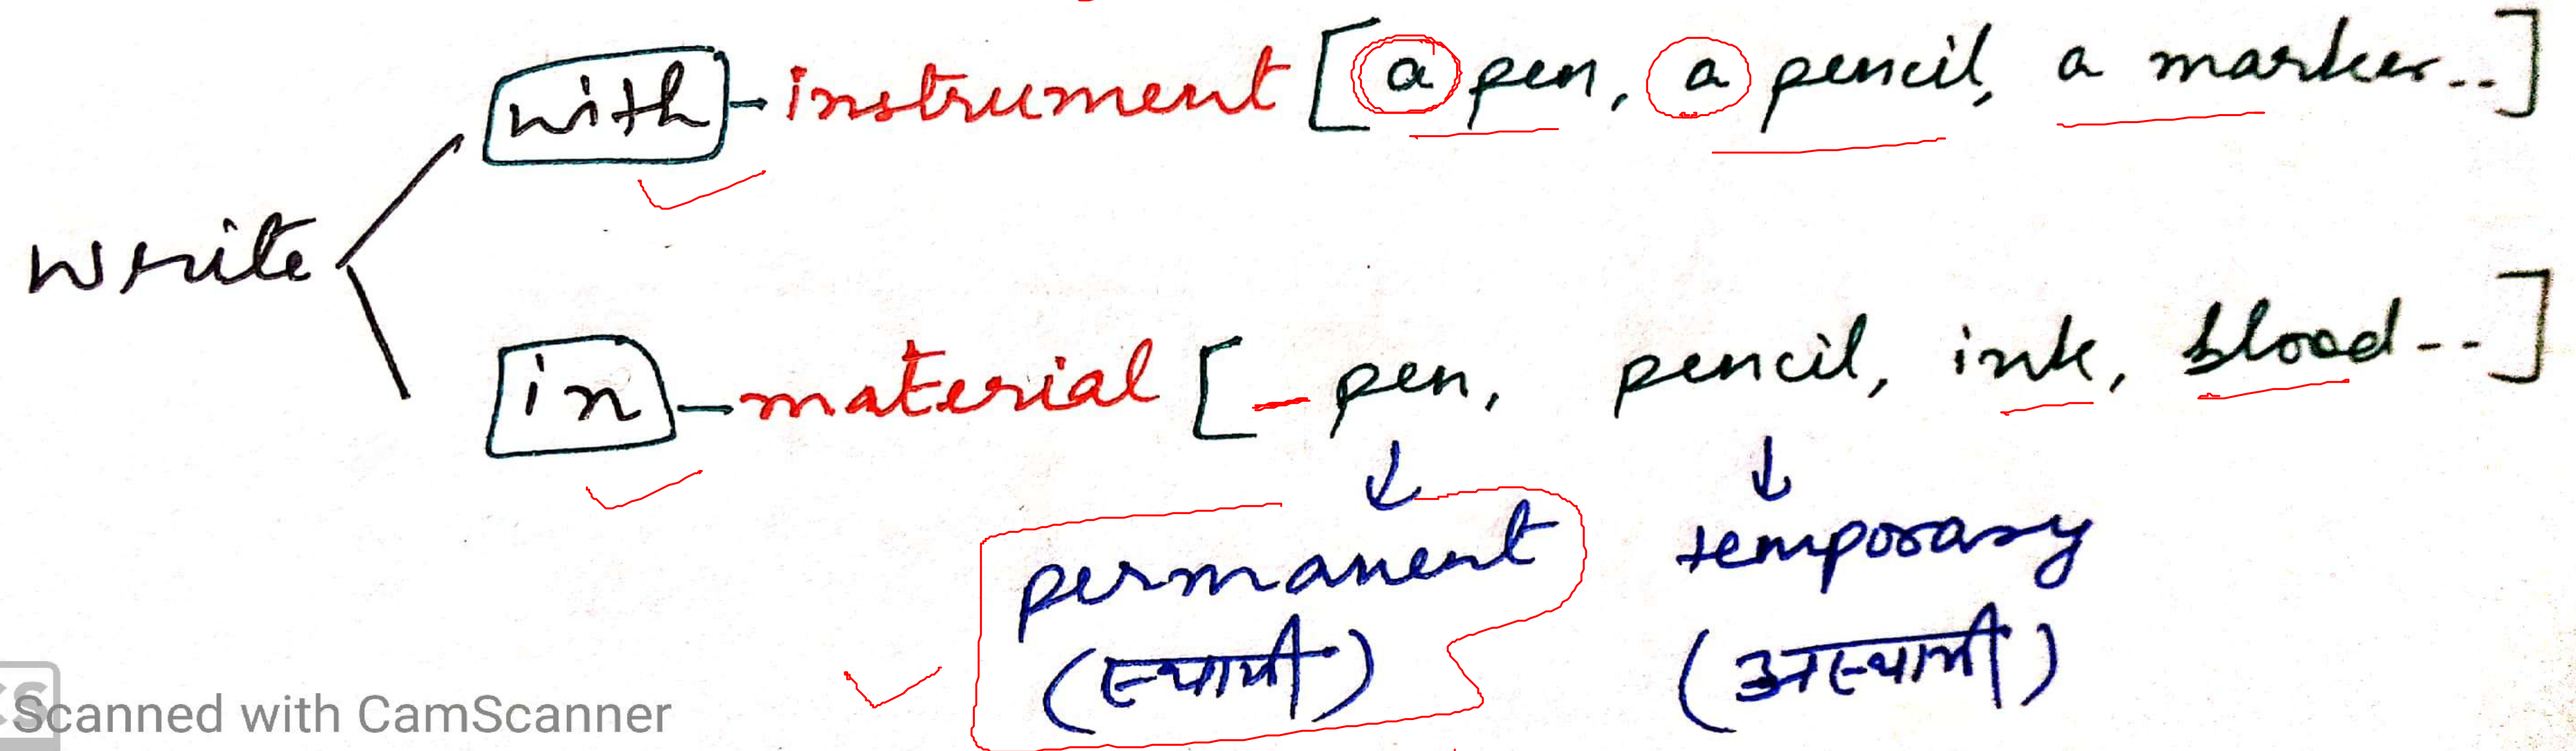 with - instrument [ a pen, a pencil, a marker.. ]
write
in - material [ - pen, pencil, ink, blood-- ]
permanent temporary
(स्थायी) (अस्थायी)
CS
Scanned with CamScanner